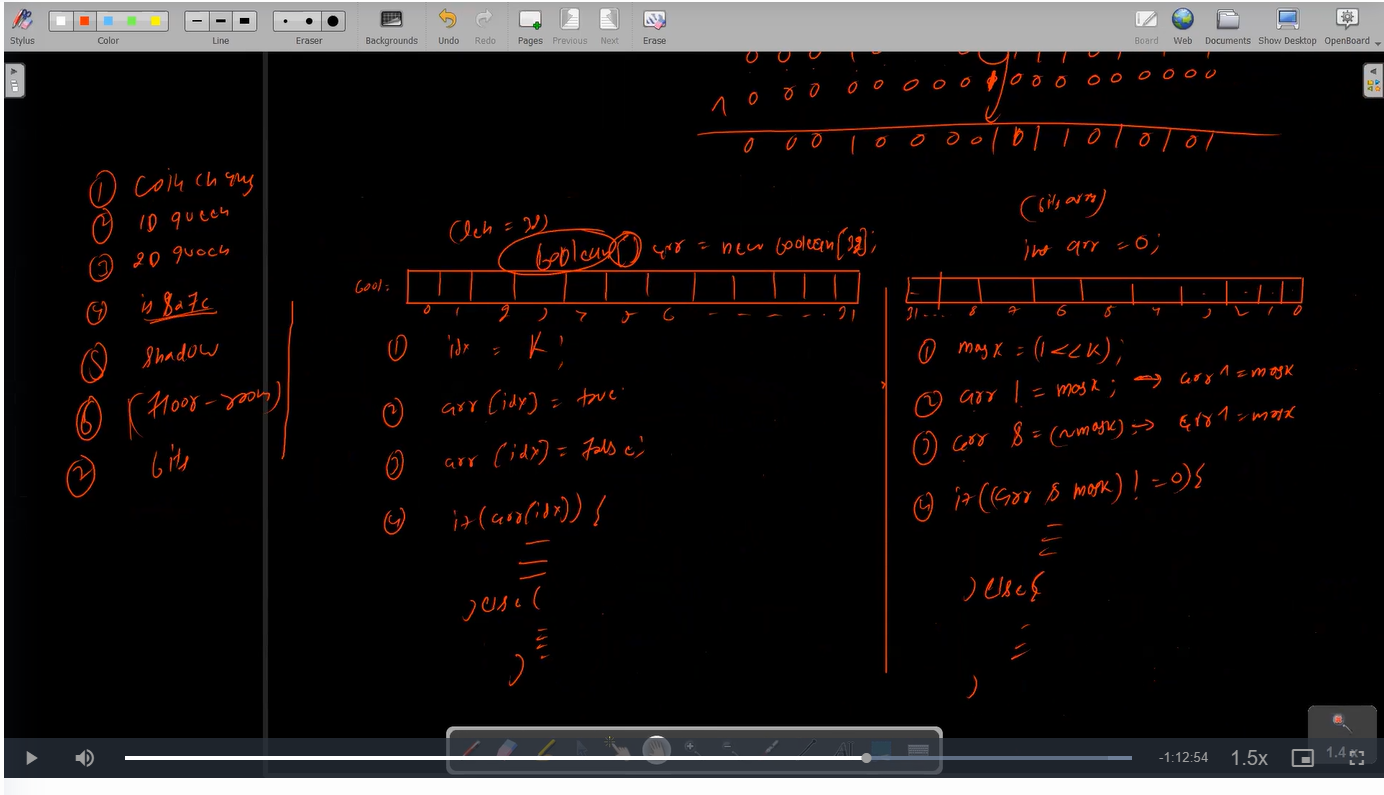 Stylus
Color
Line
Eraser
Backgrounds
Undo
Redo
Pages
Previous
Next
Erase
Board
Web
Documents
Show Desktop
OpenBoard
0 0 0 0 0 0 0 0 0 0 0 0 0 0
0 0 0 1 0 0 0 0 1 0 1 1 0 1 0 1
① Coin change
② 1D queen
③ 2D queen
④ isSafe
⑤ shadow
⑥ (floor - room)
⑦ bits
(len = 32)
boolean[] arr = new boolean[32];
bool:
0 1 2 3 4 5 6 - - - - 31
① idx = K;
② arr[idx] = true;
③ arr[idx] = false;
④ if(arr[idx]) {
} else {
}
(bits arr)
int arr = 0;
31 ... 8 7 6 5 4 3 2 1 0
① mask = (1<<K);
② arr |= mask; → arr ^= mask
③ arr &= (~mask) → arr ^= mask
④ if((arr & mask) != 0){
} else {
}
-1:12:54
1.5x